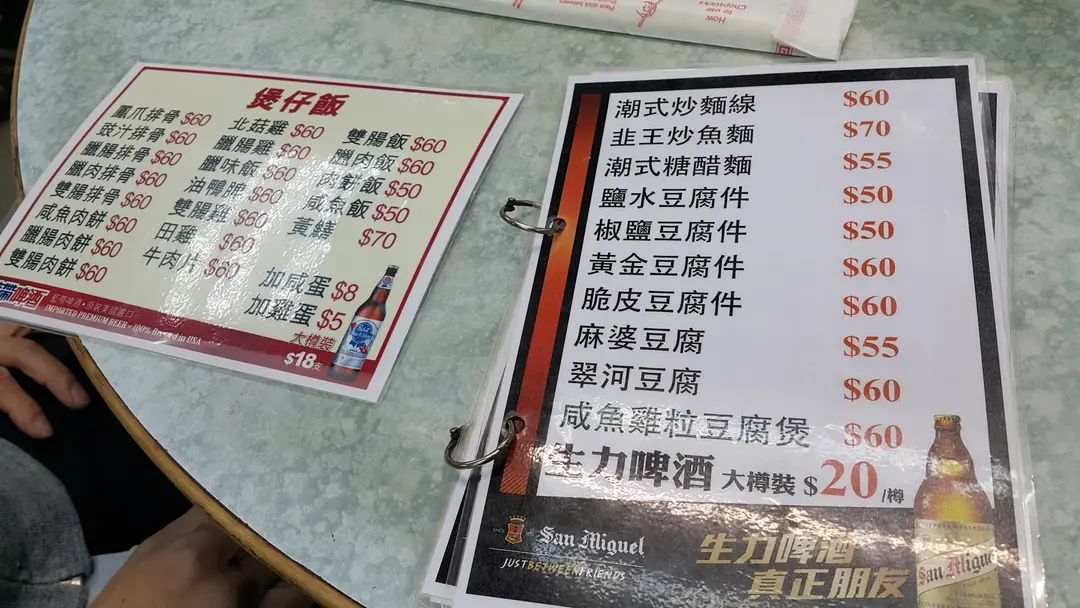 How
to use
Chopsticks
煲仔飯
鳳爪排骨 $60
豉汁排骨 $60
臘腸排骨 $60
臘肉排骨 $60
雙腸排骨 $60
咸魚肉餅 $60
臘腸肉餅 $60
雙腸肉餅 $60
北菇雞 $60
臘腸雞 $60
臘味飯 $60
油鴨髀 $60
雙腸雞 $60
田雞 $60
牛肉片 $60
雙腸飯 $60
臘肉飯 $60
肉餅飯 $50
咸魚飯 $50
黃鱔 $70
加咸蛋 $8
加雞蛋 $5
大樽裝
$18支
啤酒
IMPORTED PREMIUM BEER • 100% Brewed in USA
潮式炒麵線 $60
韭王炒魚麵 $70
潮式糖醋麵 $55
鹽水豆腐件 $50
椒鹽豆腐件 $50
黃金豆腐件 $60
脆皮豆腐件 $60
麻婆豆腐 $55
翠河豆腐 $60
咸魚雞粒豆腐煲 $60
生力啤酒 大樽裝 $20/樽
San Miguel
JUST BETWEEN FRIENDS
生力啤酒
真正朋友
San Miguel